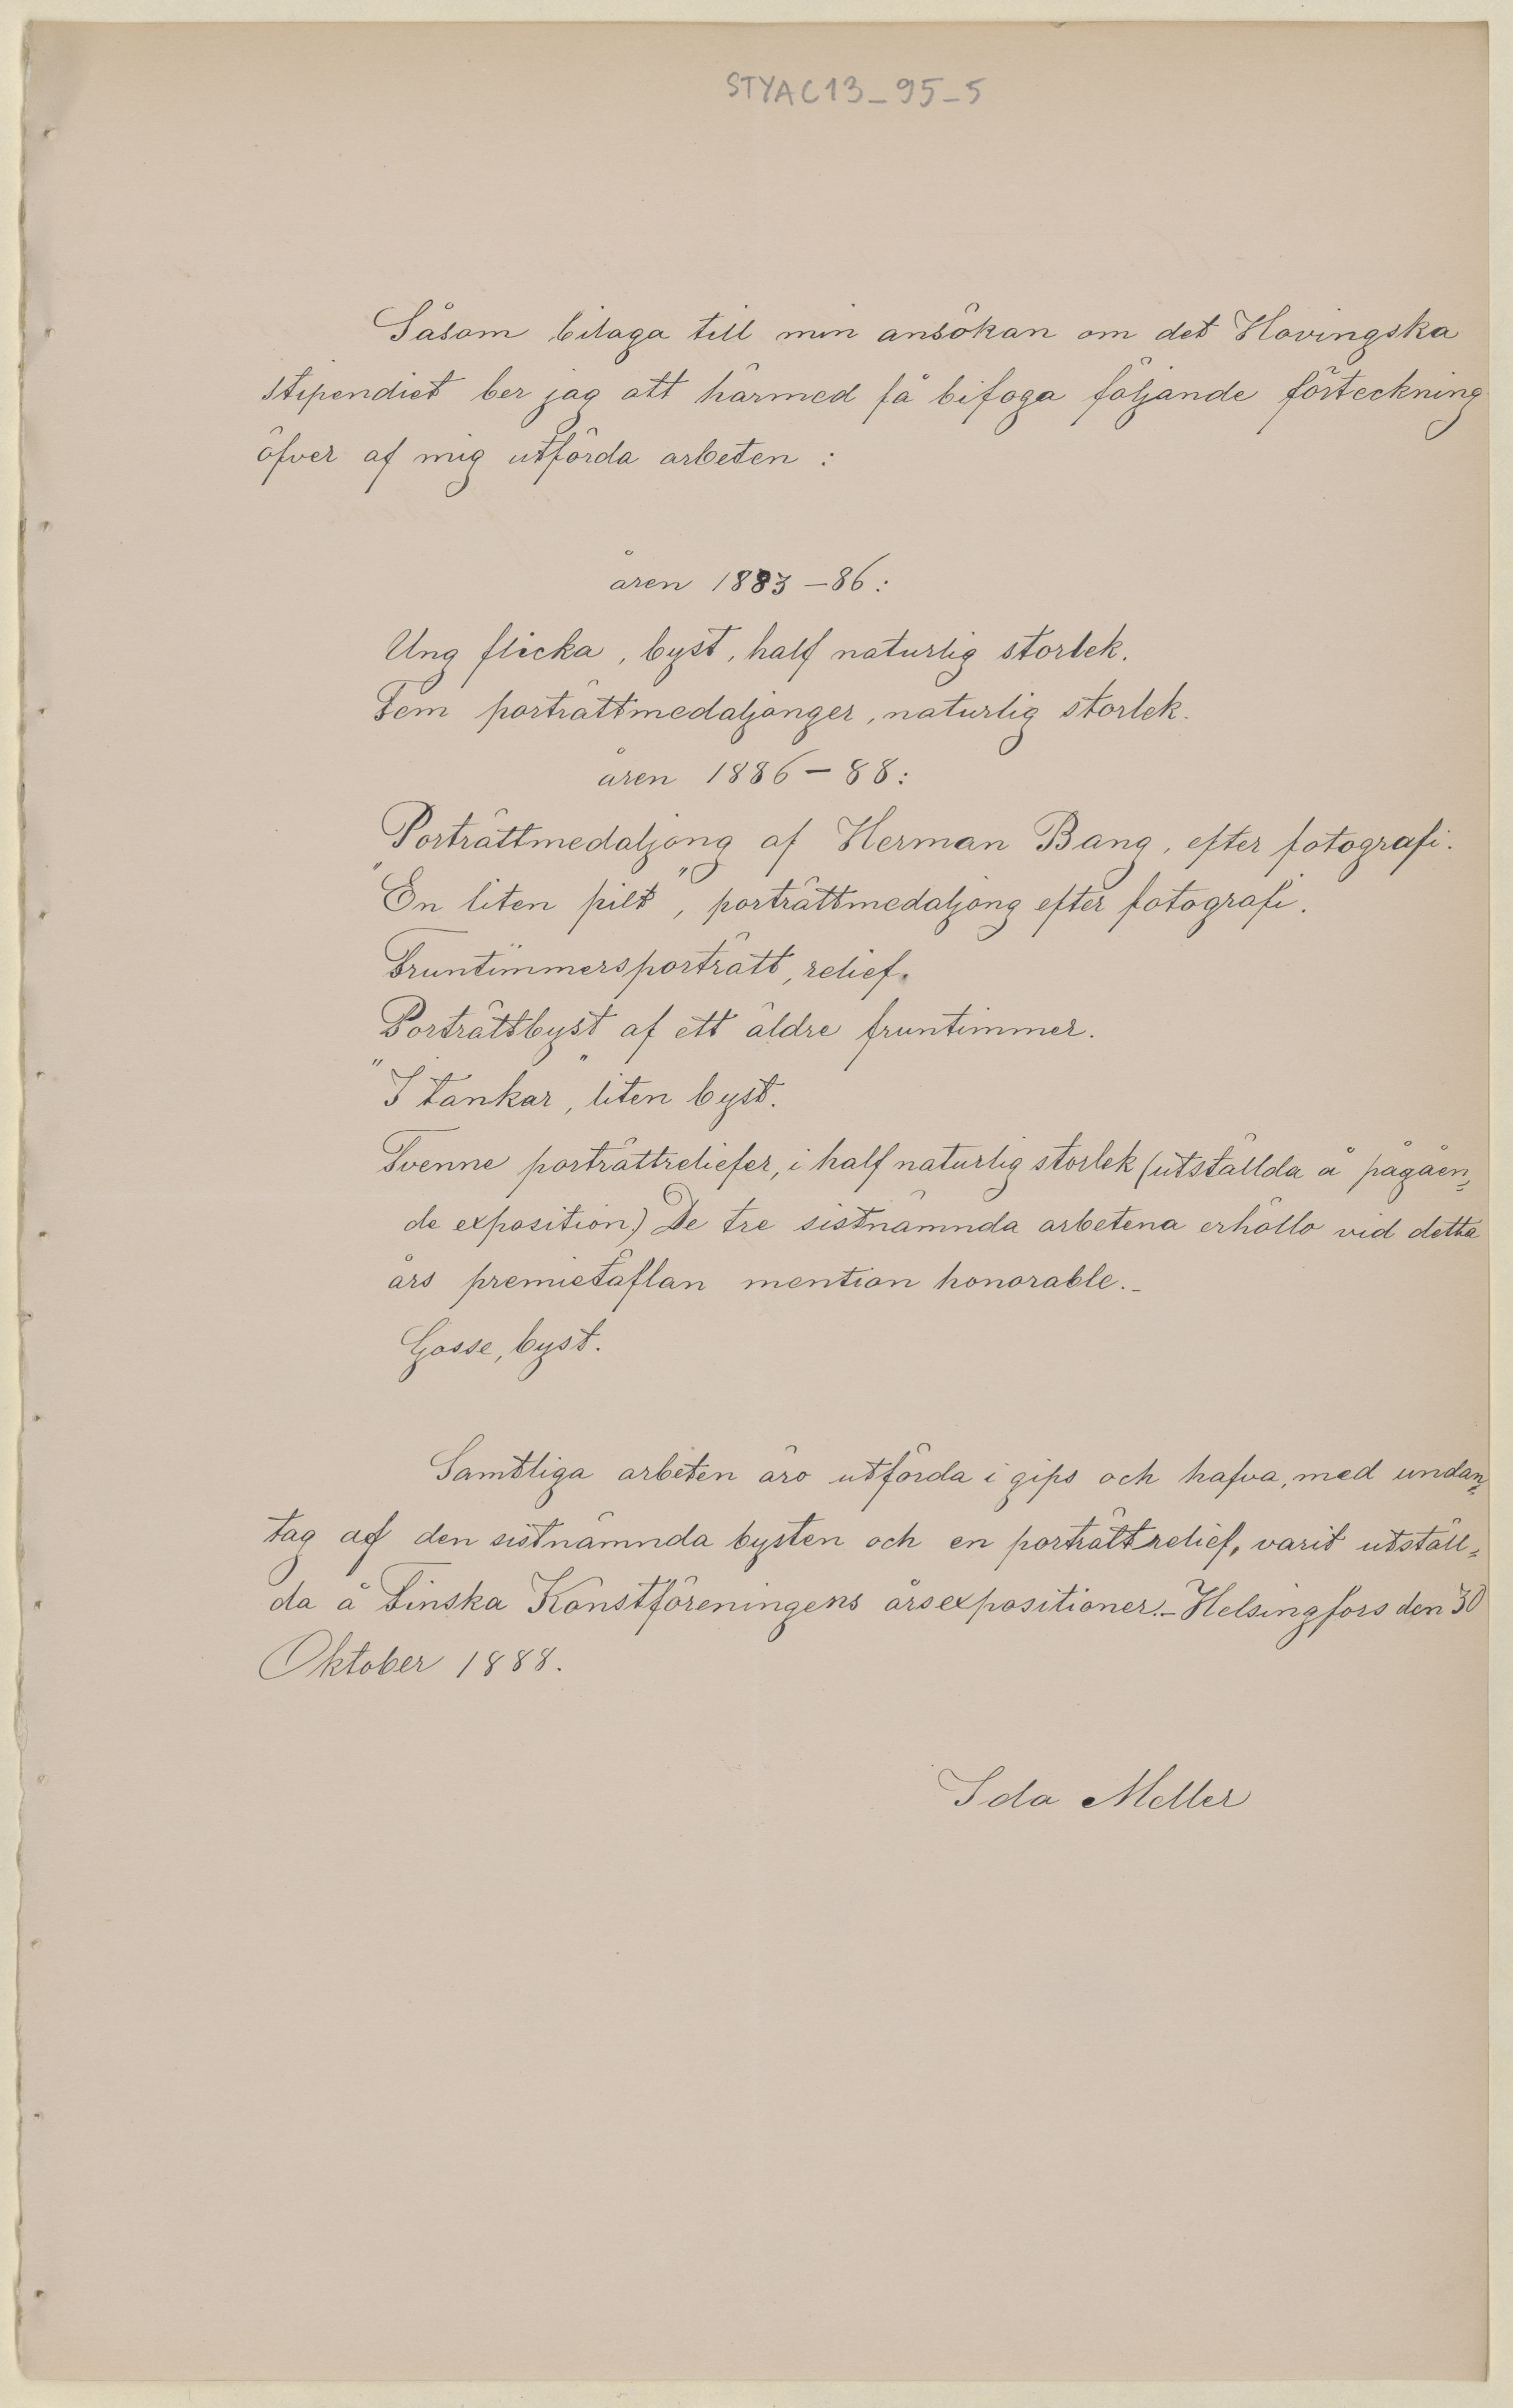 STYAC13_95_5
Såsom bilaga till min ansökan om det Hovingska
stipendiet ber jag att härmed få bifoga följande förteckning
öfver af mig utförda arbeten :
åren 1883–86:
Ung flicka, byst, half naturlig storlek.
Fem porträttmedaljonger, naturlig storlek.
åren 1886–88:
Porträttmedaljong af Herman Bang, efter fotografi.
"En liten pilt", porträttmedaljong efter fotografi.
Fruntimmersporträtt, relief.
Porträttbyst af ett äldre fruntimmer.
"I tankar", liten byst.
Tvenne porträttreliefer, i half naturlig storlek (utställda å pågåen=
de exposition) De tre sistnämnda arbetena erhöllo vid detta
års premietäflan mention honorable.–
Gosse, byst.
Samtliga arbeten äro utförda i gips och hafva, med undan=
tag af den sistnämnda bysten och en porträttrelief, varit utställ=
da å Finska Konstföreningens årsexpositioner.– Helsingfors den 30
Oktober 1888.
Ida Meller